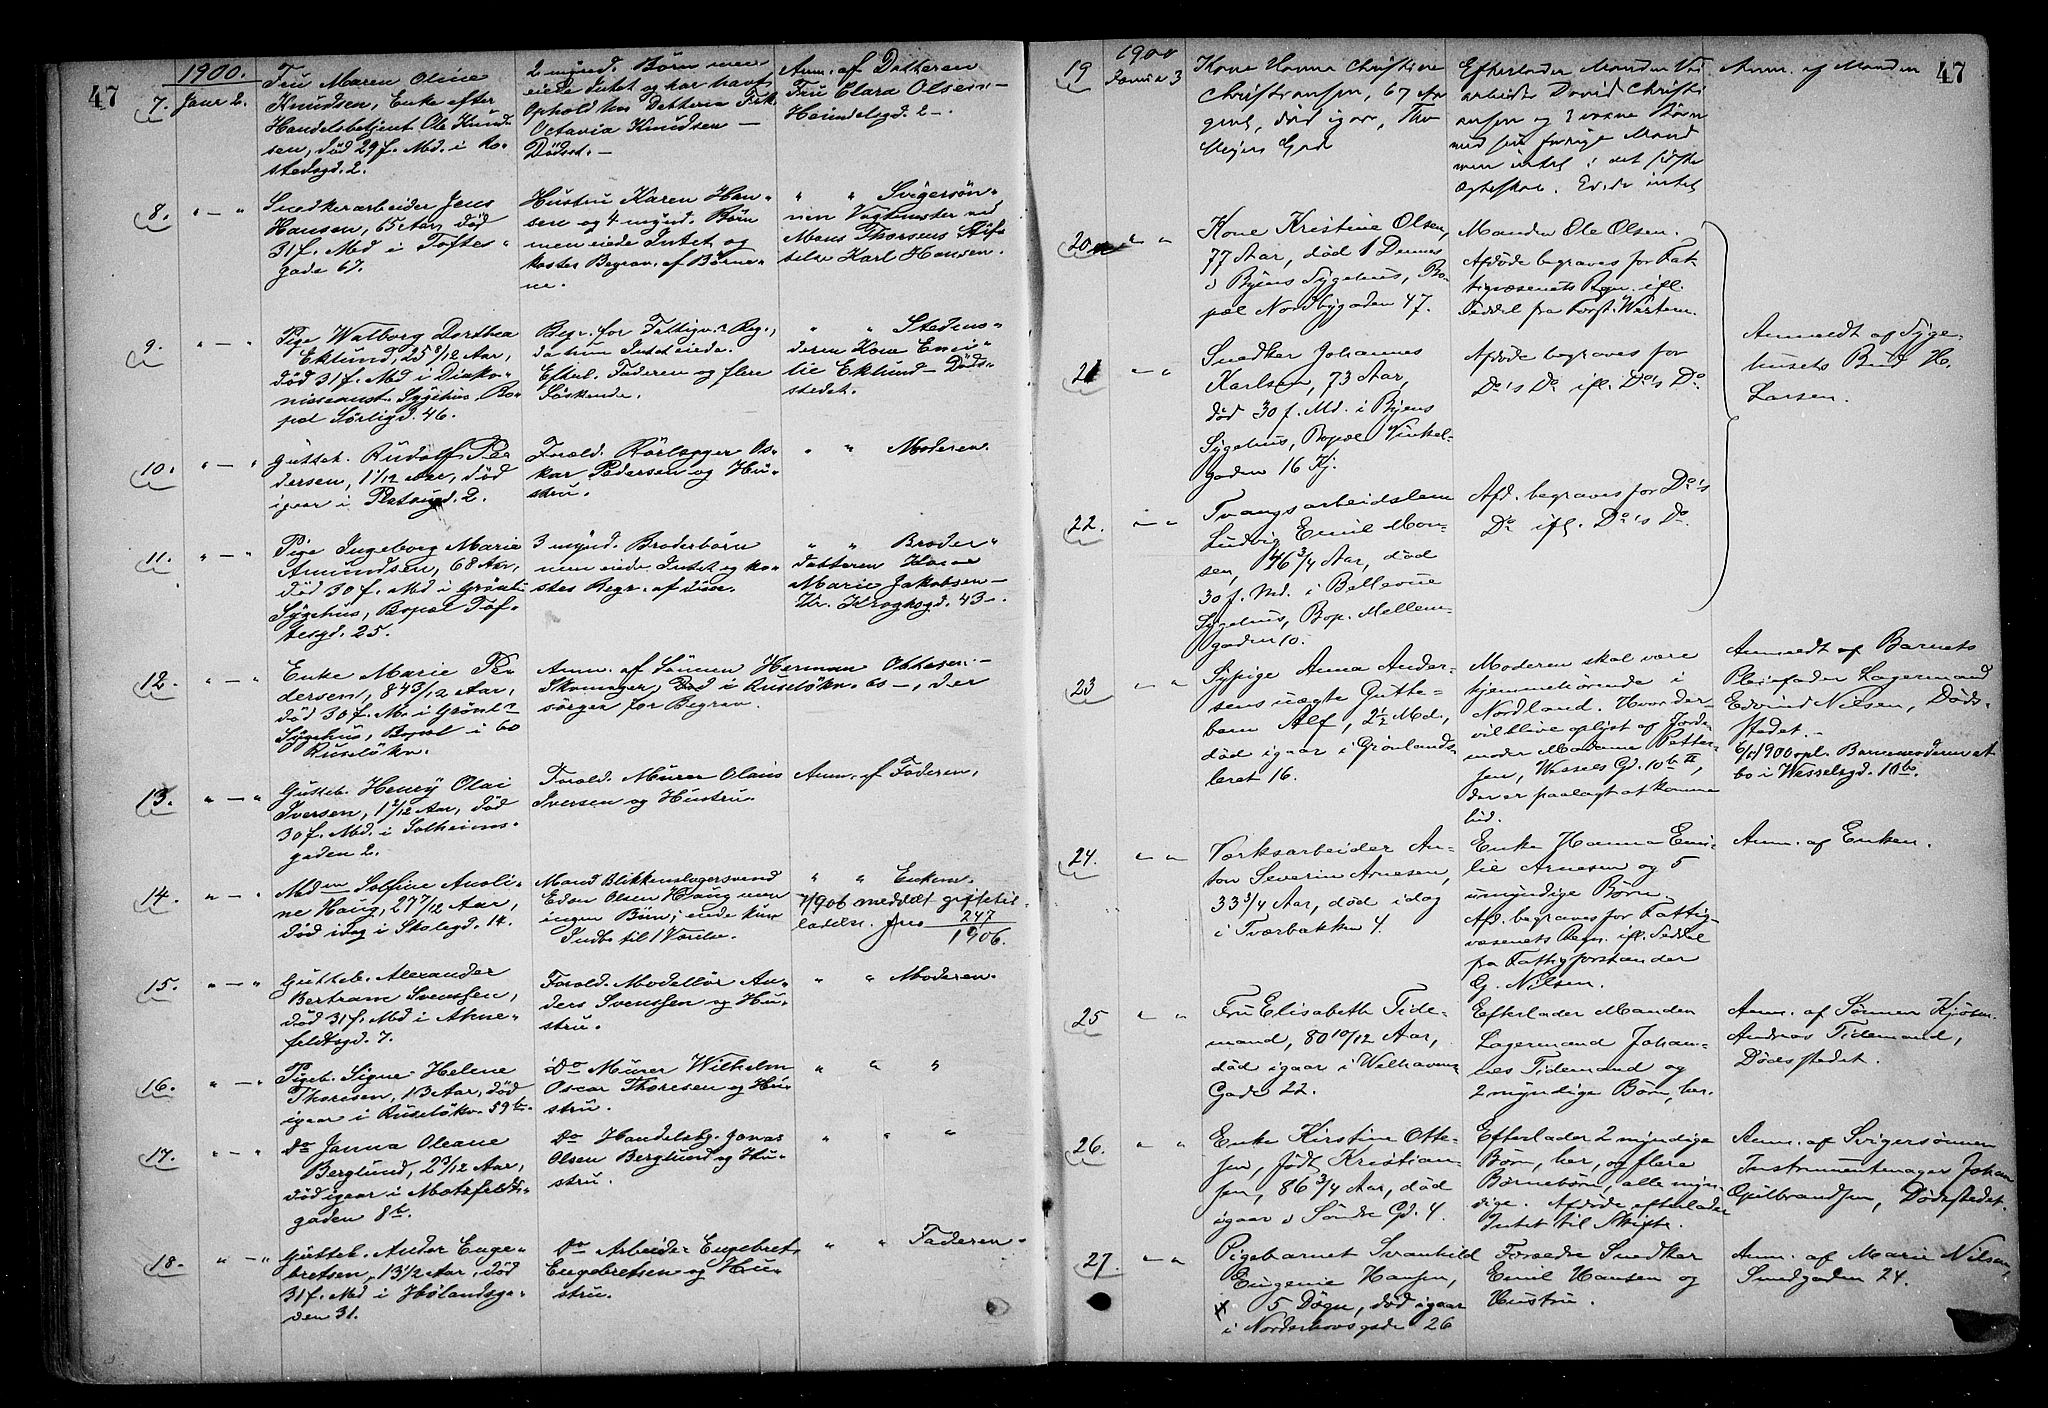 47
1900.
7. Janr 2.
Fru Maren Oline
Knudsen, Enke efter
Handelsbetjent Ole Knud-
sen, død 29 f. Md. i Ro-
stedsgd. 2.
2 mynd. Børn men
eiede Intet og har havt
Ophold hos Datteren Frk.
Octavia Knudsen —
Dødsst. —
Anm. af Datteren
Fru Clara Olsen —
Heimdelsgd. 2 —.
8. " — "
Snedkerarbeider Jens
Hansen, 65 Aar, død
31 f. Md i Toftes-
gade 67.
Hustru Karen Han-
sen og 4 mynd. Børn
men eiede Intet og
kostes Begrav. af Børne-
ne.
" " Svigersøn-
nen Vagtmester ved
Mons Thorsens Stif
telse Karl Hansen.
9. " — "
Pige Walborg Dorthea
Eklund, 25 8/12 Aar,
død 31 f. Md i Diako-
nisseanst. Sygehus, Bo-
pæl Sørligd. 46.
Begr. for Fattigv.s Reg.,
da hun Intet eiede.
Efterl. Faderen og flere
Søskende.
" " Stedmo-
deren Kone Emi-
lie Eklund — Død-
stedet.
10. " — "
Gutteb. Rudolf Pe-
dersen, 1 1/12 Aar, død
igaar i Platougd. 2.
Foræld. Rørlægger Os-
kar Pedersen og Hu-
stru.
" " Moderen.
11. " — "
Pige Ingeborg Marie
Amundsen, 68 Aar,
død 30 f. Md i Grønl.
Sygehus, Bopæl Tof-
tesgd. 25.
3 mynd. Broderbørn
men eiede Intet og ko-
stes Begr. af disse.
" " Broder-
datteren Kone
Marie Jakobsen —
Kr. Kroghsgd. 43 —.
12. " — "
Enke Marie Pe-
dersen, 84 3/12 Aar,
død 30 f. M. i Grønl.s
Sygehus, Bopæl i 60
Ruseløkv.
Anm. af Sønnen Herman Ottesen —
Skomager, i Ruseløkv. 60 —, der
sørger for Begrav.
13. " — "
Gutteb. Henry Olai
Iversen, 1 2/12 Aar, død
30 f. Md. i Solheims-
gaden 2.
Foræld. Murer Olaus
Iversen og Hustru.
Anm. af Faderen.
14. " — "
Mdm Solfine Anoli-
ne Haug, 27 7/12 Aar,
død idag i Skolegd. 14.
Mand Blikkenslagersvend
Eden Olsen Haug men
ingen Børn; eiede kun
Indbo til 1 Værelse.
" " Enkem.
1/1906 meddelt giftetil-
ladelse. Jno 247
1906.
15. " — "
Gutteb. Alexander
Bertram Svenssen,
død 31 f. Md i Akne-
feldtsgd. 7.
Foræld. Modellør An-
ders Svenssen og Hu-
stru.
" " Moderen.
16. " — "
Pigeb. Signe Helene
Thoresen, 13 Aar, død
igaar i Ruseløkv. 59 b.
Do Murer Wilhelm
Oscar Thoresen og Hu-
stru.
" " "
17. " — "
Do Janna Oleane
Berglund, 2 3/12 Aar,
død igaar i Motzfeldts-
gaden 8 b.
Do Handelsbj. Jonas
Olsen Berglund og Hu-
stru.
" " "
18. " — "
Gutteb. Ander Enge-
bretsen, 1 3/12 Aar, død
31 f. Md i Hølandsga-
den 31.
Do Arbeider Engebret
Engebretsen og Hu-
stru.
" " Faderen.
47
1900
19 Januar 3
Kone Hanna Christine
Christiansen, 67 Aar
død igaar, Thv
Meyers Gade
Efterlader Manden
arbeider David Christi
ansen og 3 voxne Børn
med sin forrige Mand
men intet i det sidste
Ægteskab. Eiede intet
Anm. af Manden
20 " "
Kone Kristine Olsen,
77 Aar, død 1 Dennes
i Byens Sygehus, Bo-
pæl Nordbygaden 47.
Manden Ole Olsen.
Afdøde begraves for Fat-
tigvæsenets Regn. ifl.
Seddel fra Forst. Western.
21 " "
Snedker Johannes
Karlsen, 73 Aar,
død 30 f. Md. i Byens
Sygehus, Bopæl Vinkel-
gaden 16 Kj.
Afdøde begraves for
Do's Do ifl. Do's Do.
Anmeldt af Syge-
husets Bud H.
Larsen.
22. " "
Tvangsarbeidslem
Ludvig Emil Mon-
sen, 46 3/4 Aar, død
30 f. Md. i Bellevue
Sygehus, Bop. Mellem-
gaden 10.
Afd. begraves for Do's
Do ifl. Do's Do.
23 " "
Sypige Anna Ander-
sens uægte Gutte-
barn Alf, 2 1/2 Md.,
død igaar i Grønlands-
leret 16.
Moderen skal være
hjemmehørende i
Nordland. Hvor der-
vil blive oplyst af Jorde-
moder Madame Petter-
sen, Wessels Gd. 10 b II,
der er paalagt at komme
hid.
Anmeldt af Barnets
Pleiefader Lagermand
Edvind Nilsen, Døds-
stedet. —
6/1 1900 opl. Barnemoderen at
bo i Wesselsgd. 10 b.
24. " "
Værksarbeider An-
ton Severin Arnesen,
33 3/4 Aar, død idag
i Tværbakken 4.
Enke Hanna Emi-
lie Arnesen og 5
umyndige Børn
Afd. begraves for Fattig-
væsenets Regn. ifl. Seddel
fra Fattigforstander
G. Nilsen.
Anm. af Enken.
25 " "
Fru Elisabeth Tide-
mand, 80 10/12 Aar,
død igaar i Welhavens
Gade 22.
Efterlader Manden
Lagermand Johan-
nes Tidemand og
2 myndige Børn, her.
Anm. af Sønnen Kjøbm.
Andreas Tidemand,
Dødsstedet.
26. " "
Enke Kirstine Otte-
sen, født Kristian-
sen, 86 3/4 Aar, død
igaar i Søndre Gd. 4.
Efterlader 2 myndige
Børn, her, og flere
Børnebørn, alle myn-
dige. Afdøde efterlader
Intet til Skifte.
Anm. af Svigersønnen
Instrumentmager Johan
Gulbrandsen, Dødsstedet.
27. " "
Pigebarnet Svanhild
Eugenie Hansen,
x 5 Døgn, død igaar
i Norderhovsgade 26
Forældre Snedker
Emil Hansen og
Hustru.
Anm. af Marie Nilsen,
Smedgaden 24.